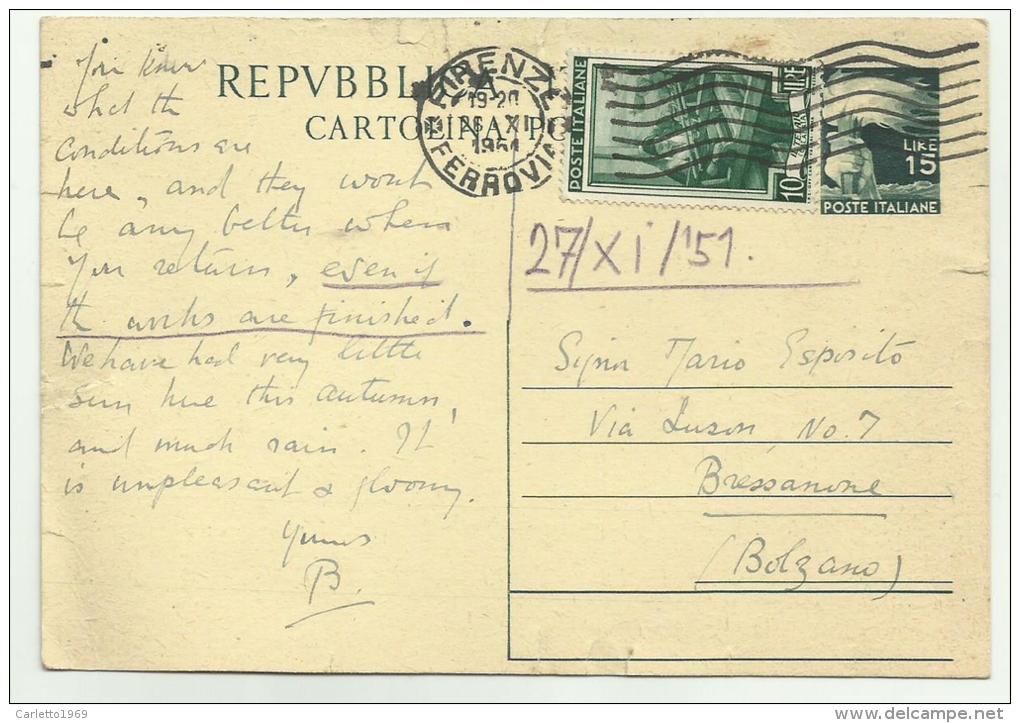 You know
what the
conditions are
here, and they wont
be any better when
you return, even if
the works are finished.
We have had very little
sun here this autumn,
and much rain. It
is unpleasant & gloomy.
Yours
B.
REPVBBLICA
CARTOLINA PO
FIRENZE
19-20
26 XI
1951
FERROVIA
POSTE ITALIANE
10
LIRE
15
POSTE ITALIANE
27/XI/'51.
Signor Mario Esposito
Via Luson No. 7
Bressanone
(Bolzano)
Carletto1969
www.delcampe.net